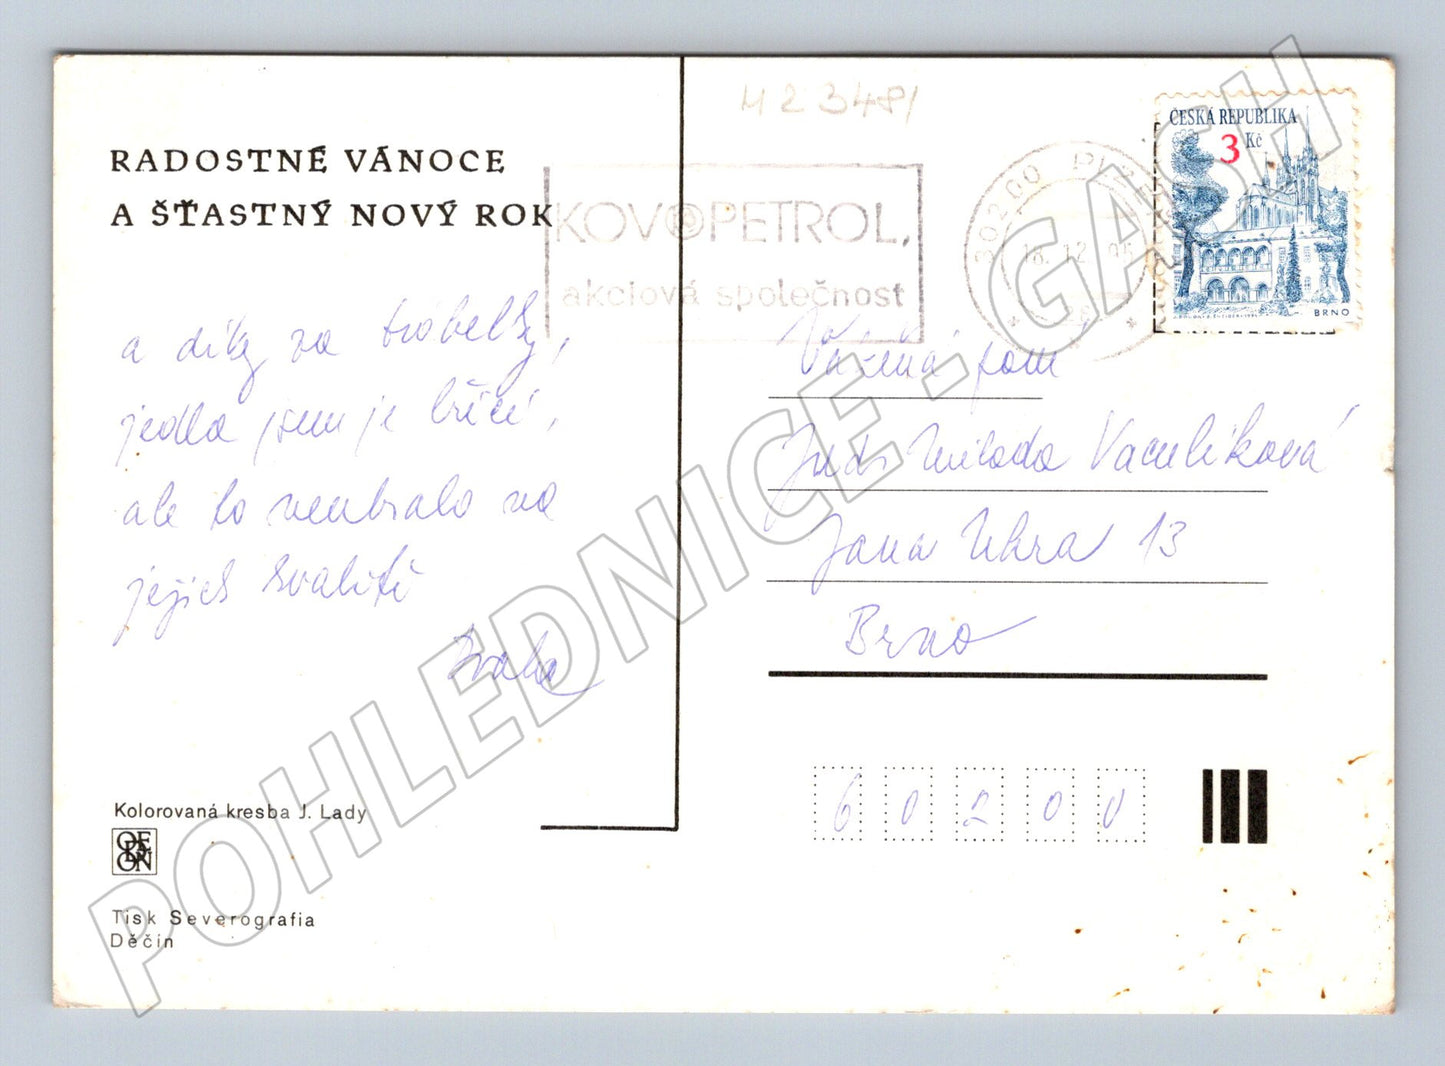 M23481
RADOSTNÉ VÁNOCE
A ŠŤASTNÝ NOVÝ ROK
KOVOPETROL,
akciová společnost
30200
18.12.95
ČESKÁ REPUBLIKA
3 Kč
BRNO
a díky za
jedla jsem je
ale to neubralo na
jejich kvalitě
Vážená paní
JUDr Milada Vaculíková
Jana Uhra 13
Brno
60200
Kolorovaná kresba J. Lady
ODEON
Tisk Severografia
Děčín
POHLEDNICE - GASH